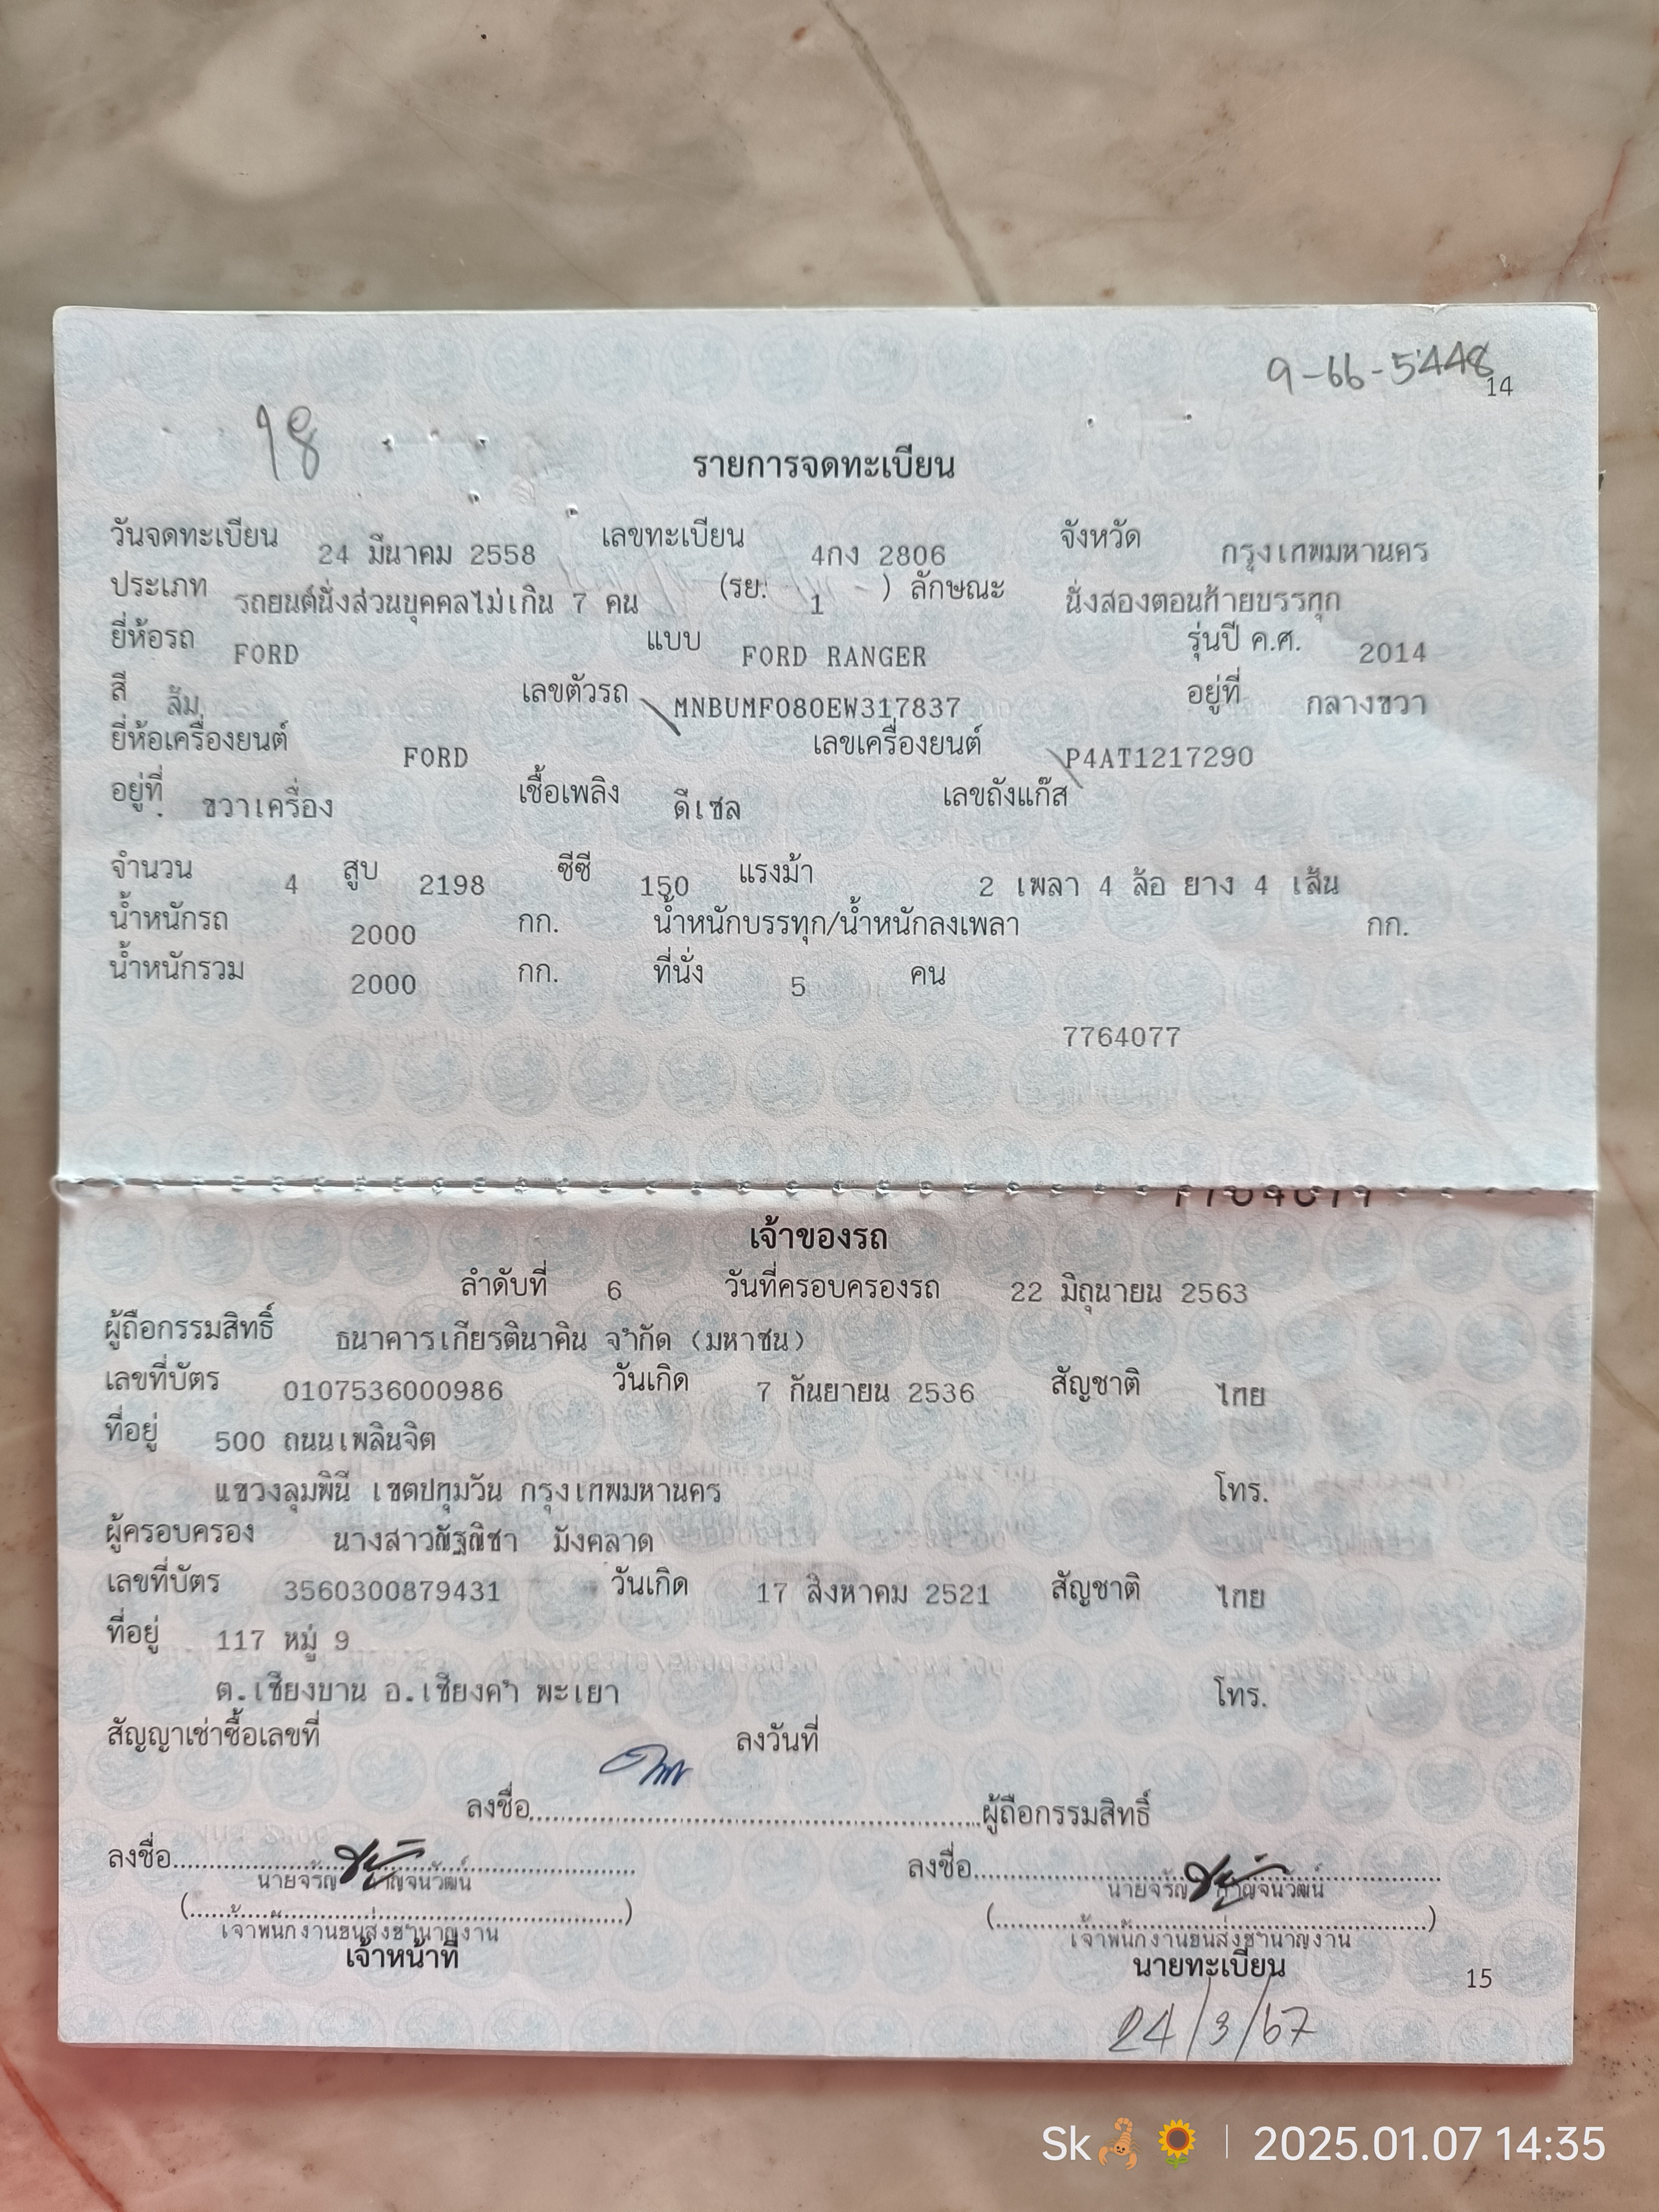 9-66-5448
14
98
รายการจดทะเบียน
วันจดทะเบียน 24 มีนาคม 2558 เลขทะเบียน 4กง 2806 จังหวัด กรุงเทพมหานคร
ประเภท รถยนต์นั่งส่วนบุคคลไม่เกิน 7 คน (รย. 1 ) ลักษณะ นั่งสองตอนท้ายบรรทุก
ยี่ห้อรถ FORD แบบ FORD RANGER รุ่นปี ค.ศ. 2014
สี ส้ม เลขตัวรถ MNBUMF080EW317837 อยู่ที่ กลางขวา
ยี่ห้อเครื่องยนต์ FORD เลขเครื่องยนต์ P4AT1217290
อยู่ที่ ขวาเครื่อง เชื้อเพลิง ดีเซล เลขถังแก๊ส
จำนวน 4 สูบ 2198 ซีซี 150 แรงม้า 2 เพลา 4 ล้อ ยาง 4 เส้น
น้ำหนักรถ 2000 กก. น้ำหนักบรรทุก/น้ำหนักลงเพลา กก.
น้ำหนักรวม 2000 กก. ที่นั่ง 5 คน
7764077
เจ้าของรถ
ลำดับที่ 6 วันที่ครอบครองรถ 22 มิถุนายน 2563
ผู้ถือกรรมสิทธิ์ ธนาคารเกียรตินาคิน จำกัด (มหาชน)
เลขที่บัตร 0107536000986 วันเกิด 7 กันยายน 2536 สัญชาติ ไทย
ที่อยู่ 500 ถนนเพลินจิต
แขวงลุมพินี เขตปทุมวัน กรุงเทพมหานคร โทร.
ผู้ครอบครอง นางสาวณัฐณิชา มังคลาด
เลขที่บัตร 3560300879431 วันเกิด 17 สิงหาคม 2521 สัญชาติ ไทย
ที่อยู่ 117 หมู่ 9
ต.เชียงบาน อ.เชียงคำ พะเยา โทร.
สัญญาเช่าซื้อเลขที่ ลงวันที่
ลงชื่อ............ผู้ถือกรรมสิทธิ์
ลงชื่อ............ ลงชื่อ............
นายจรัญ กาญจนวัฒน์ นายจรัญ กาญจนวัฒน์
(............) (............)
เจ้าพนักงานขนส่งชำนาญงาน เจ้าพนักงานขนส่งชำนาญงาน
เจ้าหน้าที่ นายทะเบียน
15
24/3/67
Sk | 2025.01.07 14:35